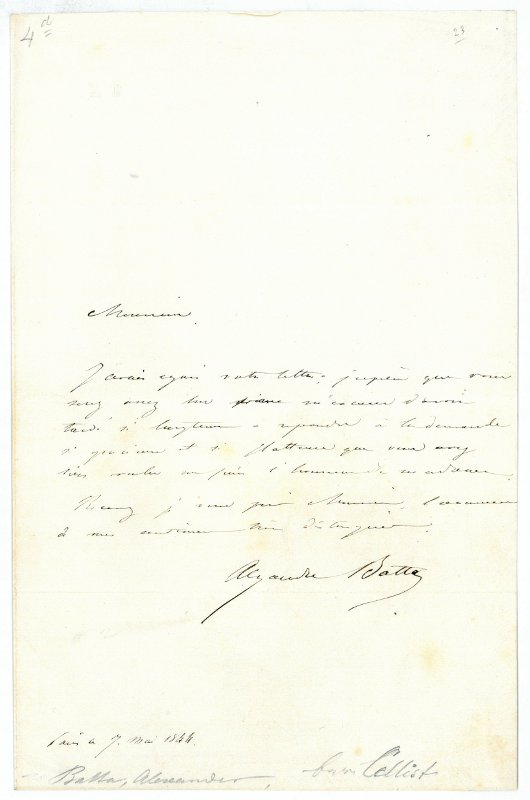 4d
23
Monsieur
J'avais égaré votre lettre; j'espère que vous
serez assez bon m'excuser d'avoir
tardé si longtemps à répondre à la demande
si gracieuse et si flatteuse que vous avez
bien voulu me faire l'honneur de m'adresser.
Recevez je vous prie Monsieur, l'assurance
de mes sentimens très distingués.
Alexandre Batta
Paris ce 7. Mai 1844.
Batta, Alexander,
Cellist